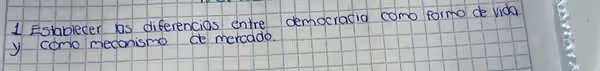 1 Establecer las diferencias entre democracia como forma de vida
y como mecanismo de mercado.